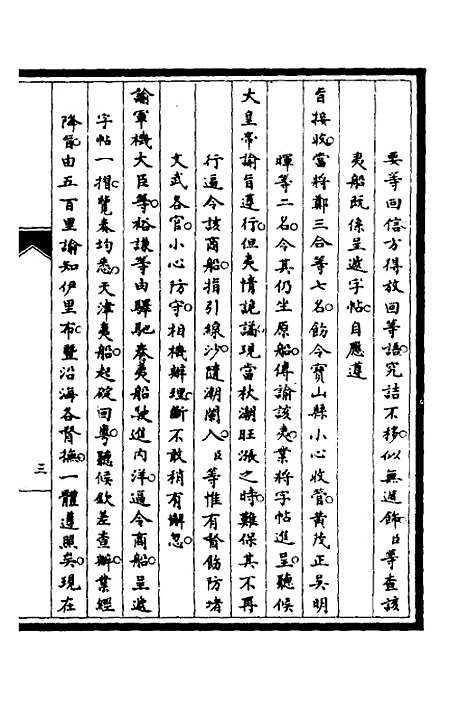 要等回信方得放回等語究詰不移似無遁飾臣等查該
夷船既係呈遞字帖自應遵
旨接收當將鄭三合等七名飭令寶山縣小心收管黃茂正吳明
暉等二名令其仍坐原船傳諭該夷業將字帖進呈聽候
大皇帝諭旨遵行但夷情詭譎現當秋潮旺漲之時難保其不再
行逼令該商船指引線沙隨潮闌入臣等惟有督飭防堵
文武各官小心防守相機辦理斷不敢稍有懈忽
諭軍機大臣等裕謙等由驛馳奏夷船駛進內洋逼令商船呈遞
字帖一摺覽奏均悉天津夷船起碇回粵聽候欽差查辦業經
降旨由五百里諭知伊里布暨沿海各督撫一體遵照矣現在
三